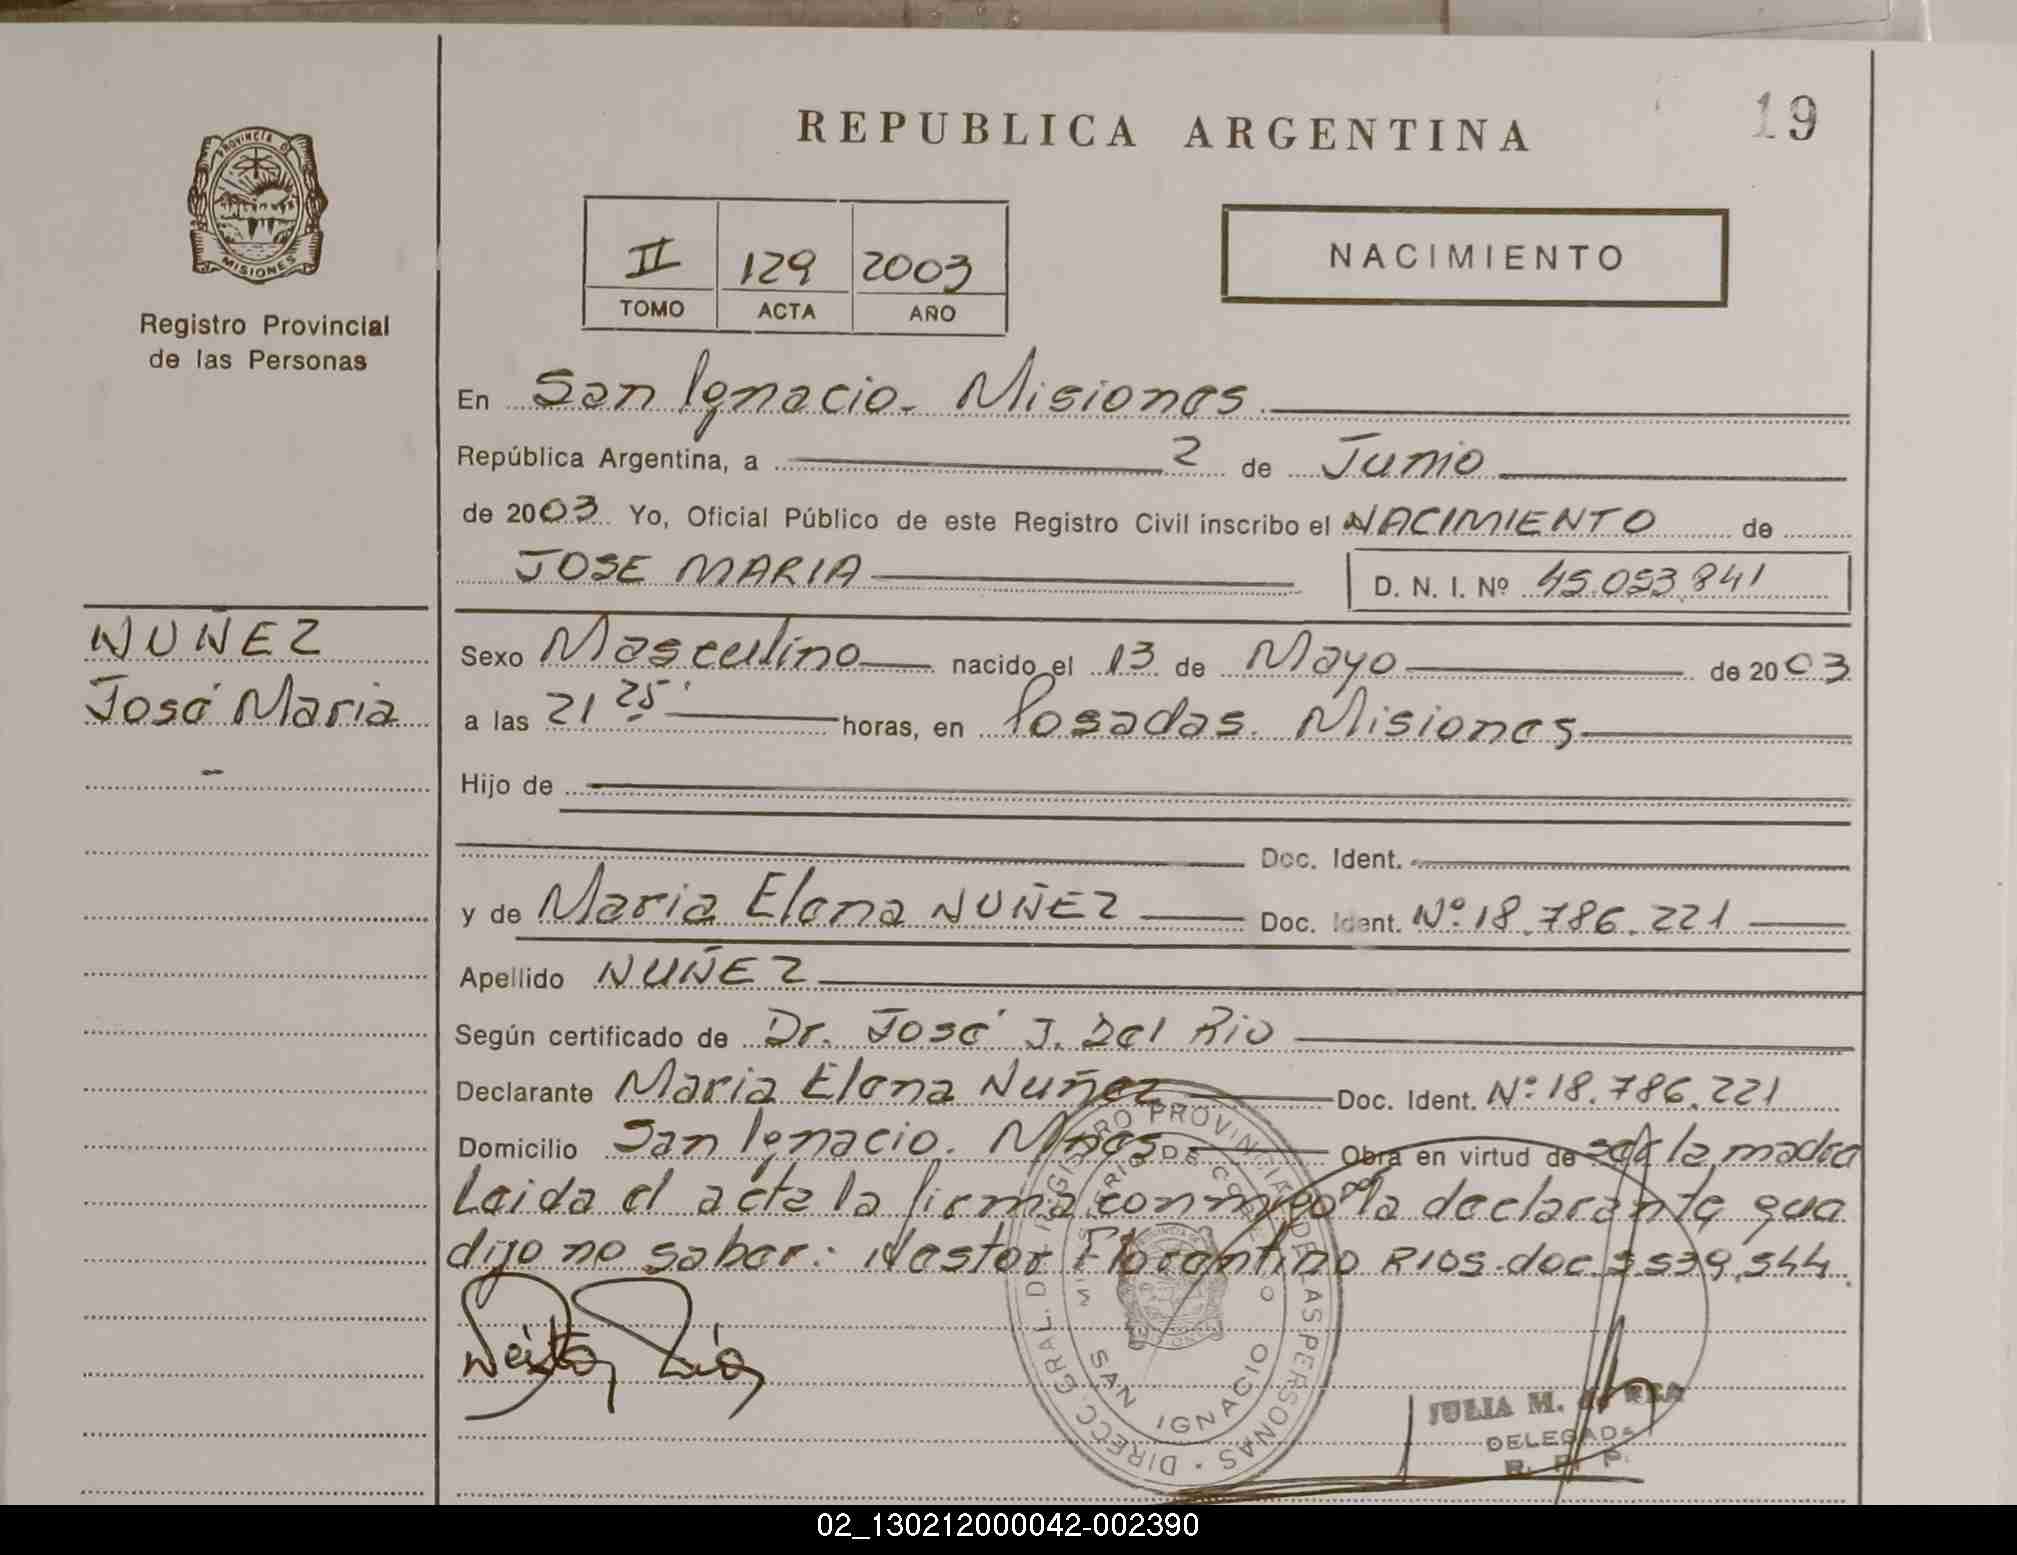 REPUBLICA ARGENTINA
19
PROVINCIA D
MISIONES
Registro Provincial
de las Personas
II 129 2003
TOMO ACTA AÑO
NACIMIENTO
En San Ignacio. Misiones
República Argentina, a 2 de Junio
de 2003 Yo, Oficial Público de este Registro Civil inscribo el NACIMIENTO de
JOSE MARIA D. N. I. Nº 45.053.841
NUÑEZ
José Maria
Sexo Masculino nacido el 13 de Mayo de 2003
a las 21 25' horas, en Posadas. Misiones
Hijo de
Doc. Ident.
y de Maria Elena NUÑEZ Doc. Ident. Nº 18.786.221
Apellido NUÑEZ
Según certificado de Dr. José J. Del Rio
Declarante Maria Elena Nuñez Doc. Ident. Nº 18.786.221
Domicilio San Ignacio. Mnes Obra en virtud de ser la madre
Leida el acta la firma conmigo por la declarante que
dijo no saber: Nestor Florentino RIOS. doc. 5.539.544.
Nestor Rios
DIRECC. GRAL. DEL REGISTRO PROVINCIAL DE LAS PERSONAS
SAN IGNACIO
JULIA M. de
DELEGADA
R. P. P.
02_130212000042-002390